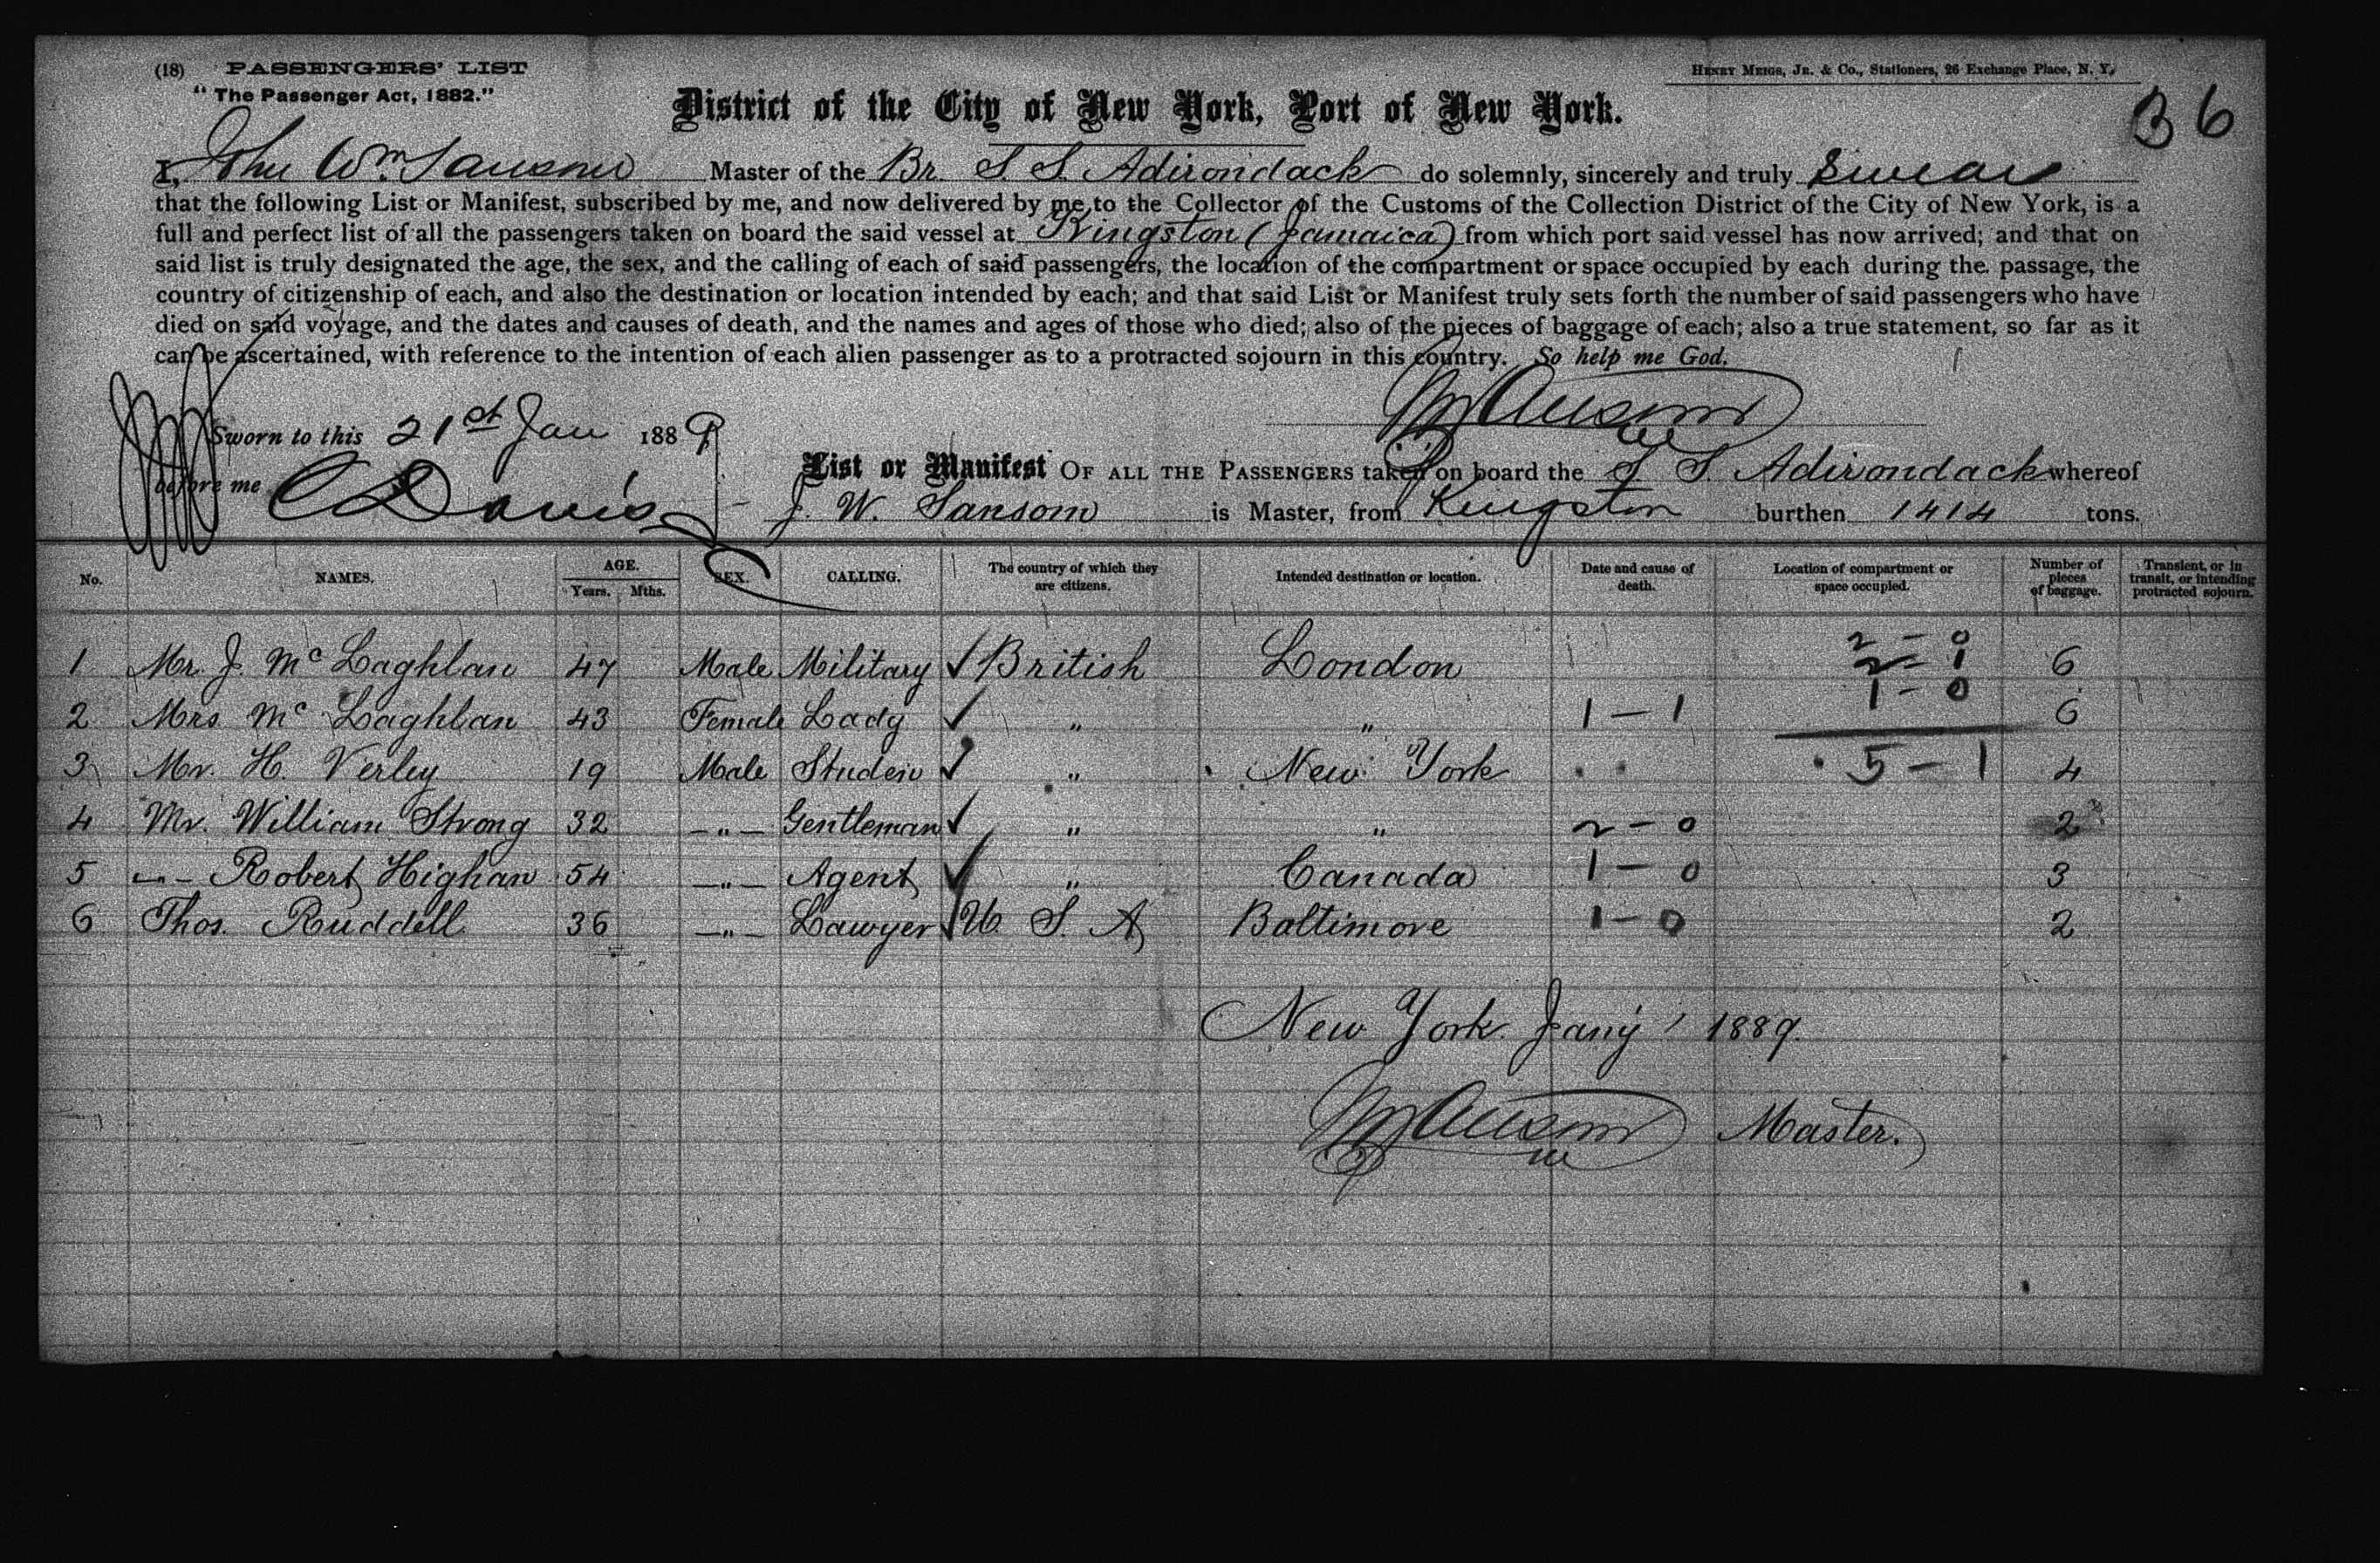 (18) PASSENGERS' LIST
HENRY MEIGS, JR. & Co., Stationers, 26 Exchange Place, N. Y.
" The Passenger Act, 1882."
36
District of the City of New York, Port of New York.
I, John Wm. Sansom Master of the Br. S. S. Adirondack do solemnly, sincerely and truly Swear
that the following List or Manifest, subscribed by me, and now delivered by me to the Collector of the Customs of the Collection District of the City of New York, is a
full and perfect list of all the passengers taken on board the said vessel at Kingston (Jamaica) from which port said vessel has now arrived; and that on
said list is truly designated the age, the sex, and the calling of each of said passengers, the location of the compartment or space occupied by each during the passage, the
country of citizenship of each, and also the destination or location intended by each; and that said List or Manifest truly sets forth the number of said passengers who have
died on said voyage, and the dates and causes of death, and the names and ages of those who died; also of the pieces of baggage of each; also a true statement, so far as it
can be ascertained, with reference to the intention of each alien passenger as to a protracted sojourn in this country. So help me God.
JWSansom
Sworn to this 21st Jan 1889
before me C Davis
List or Manifest OF ALL THE PASSENGERS taken on board the S. S. Adirondack whereof
J. W. Sansom is Master, from Kingston burthen 1414 tons.
No. NAMES. AGE. Years. Mths. SEX. CALLING. The country of which they are citizens. Intended destination or location. Date and cause of death. Location of compartment or space occupied. Number of pieces of baggage. Transient, or in transit, or intending protracted sojourn.
2 - 0
1 Mr. J. Mc Laghlan 47 Male Military ✓ British London 2 - 1 6
1 - 0
2 Mrs Mc Laghlan 43 Female Lady ✓ " " 1 - 1 6
3 Mr. H. Verley 19 Male Studen ✓ " New York 5 - 1 4
4 Mr. William Strong 32 -"- Gentleman ✓ " " 2 - 0 2
5 -"- Robert Highan 54 -"- Agent ✓ " Canada 1 - 0 3
6 Thos. Ruddell 36 -"- Lawyer ✓ U. S. A Baltimore 1 - 0 2
New York Jany 1889.
JWSansom Master.